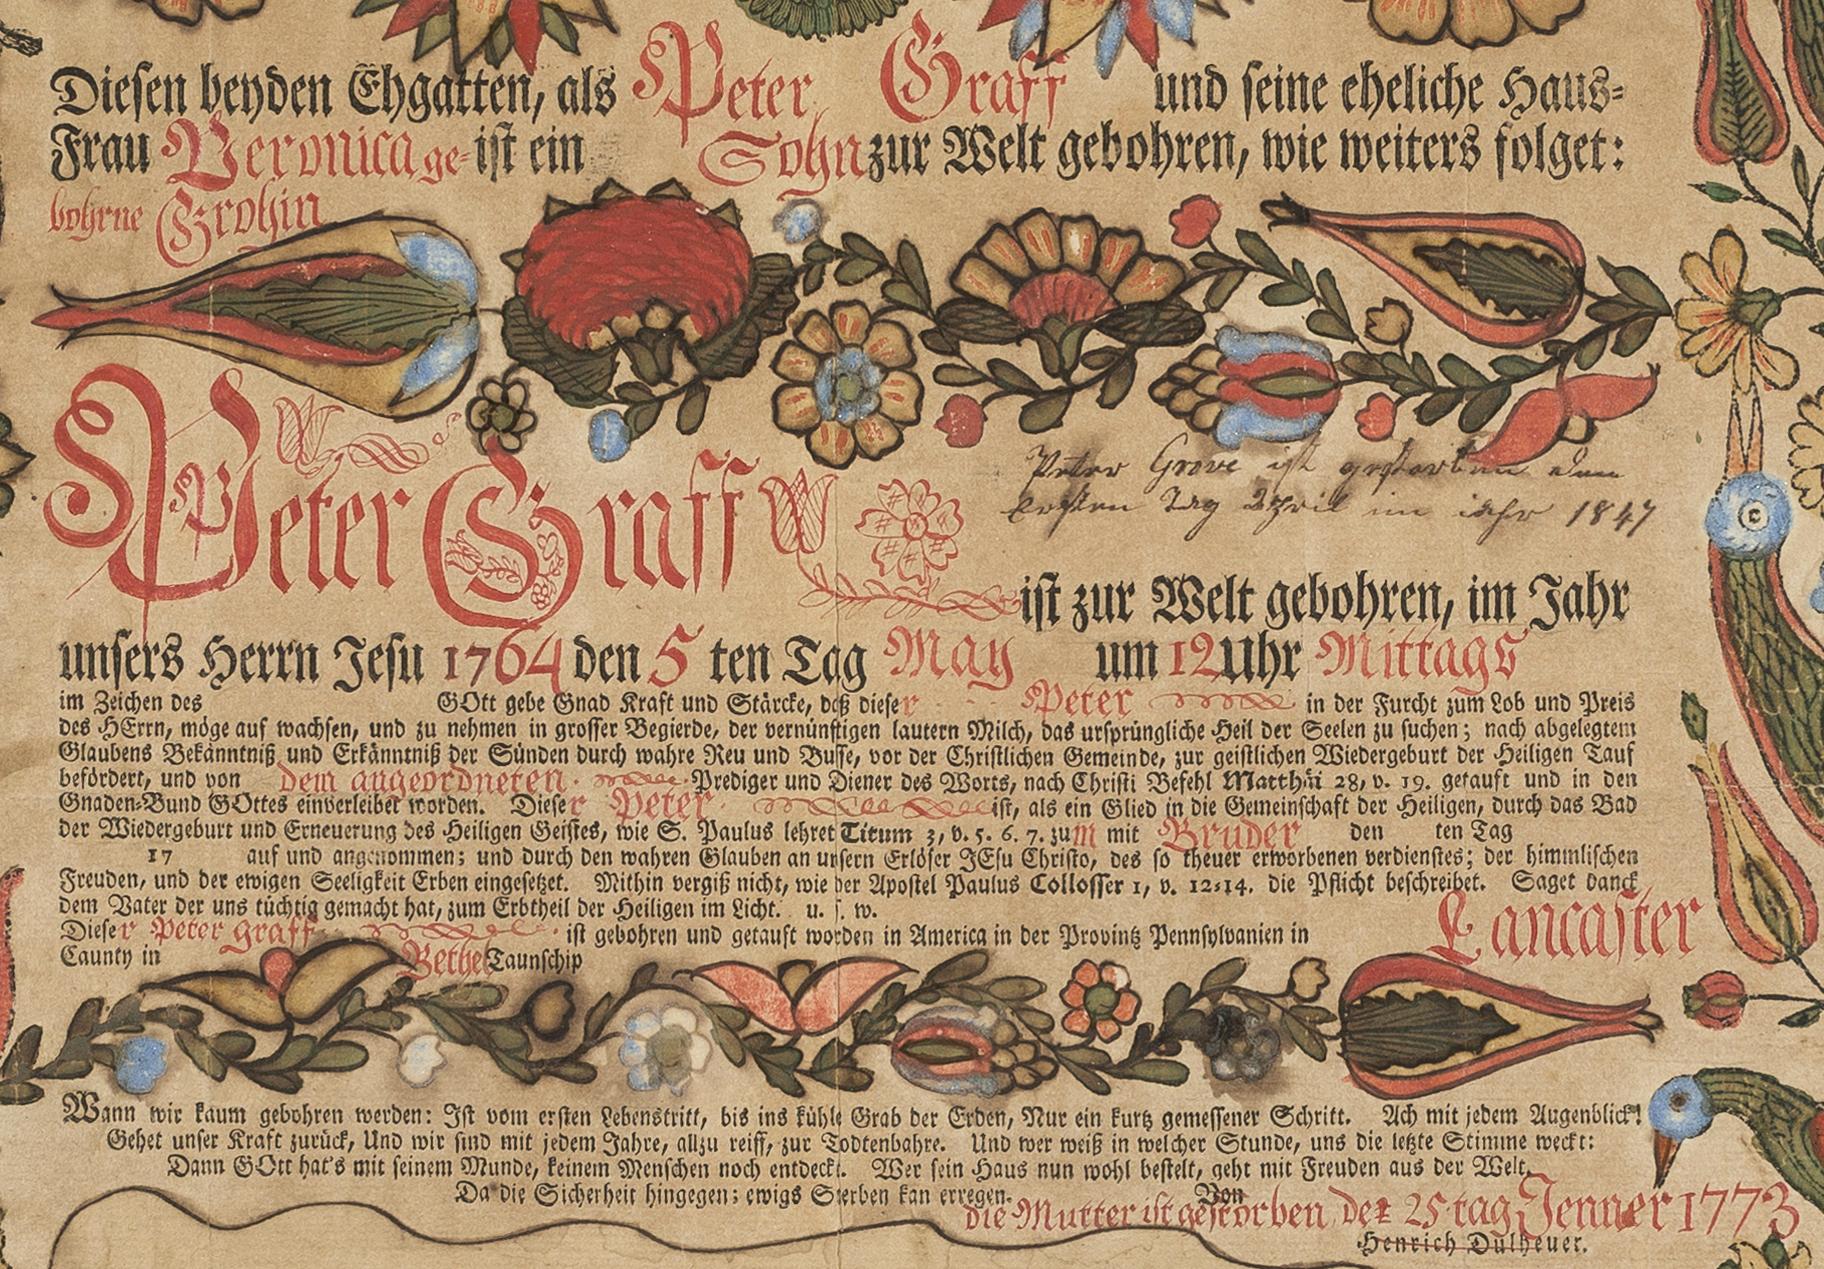 Diesen beyden Ehgatten, als Peter Graff und seine eheliche Haus-
Frau Veronica ge- ist ein Sohn zur Welt gebohren, wie weiters folget:
bohrne Grohin
Peter Grove ist gestorben den
ersten Tag April im iahr 1847
Peter Graff
ist zur Welt gebohren, im Jahr
unsers Herrn Jesu 1764 den 5 ten Tag May um 12 Uhr Mittags
im Zeichen des GOtt gebe Gnad Kraft und Stärcke, daß dieser Peter in der Furcht zum Lob und Preis
des HErrn, möge auf wachsen, und zu nehmen in grosser Begierde, der vernünftigen lautern Milch, das ursprüngliche Heil der Seelen zu suchen; nach abgelegtem
Glaubens Bekänntniß und Erkänntniß der Sünden durch wahre Reu und Busse, vor der Christlichen Gemeinde, zur geistlichen Wiedergeburt der Heiligen Tauf
befördert, und von dem angeordneten Prediger und Diener des Worts, nach Christi Befehl Matthäi 28, v. 19. getauft und in den
Gnaden-Bund GOttes einverleibet worden. Dieser Peter ist, als ein Glied in die Gemeinschaft der Heiligen, durch das Bad
der Wiedergeburt und Erneuerung des Heiligen Geistes, wie S. Paulus lehret Titum 3, v. 5. 6. 7. zum mit Bruder den ten Tag
17 auf und angenommen; und durch den wahren Glauben an unsern Erlöser JEsu Christo, des so theuer erworbenen verdienstes; der himmlischen
Freuden, und der ewigen Seeligkeit Erben eingesetzet. Mithin vergiß nicht, wie der Apostel Paulus Collosser 1, v. 12-14. die Pflicht beschreibet. Saget danck
dem Vater der uns tüchtig gemacht hat, zum Erbtheil der Heiligen im Licht. u. s. w.
Dieser Peter graff ist gebohren und getauft worden in America in der Provintz Pennsylvanien in Lancaster
Caunty in Bethel Taunschip
Wann wir kaum gebohren werden: Ist vom ersten Lebenstritt, bis ins kühle Grab der Erden, Nur ein kurtz gemessener Schritt. Ach mit jedem Augenblick!
Gehet unser Kraft zurück, Und wir sind mit jedem Jahre, allzu reiff, zur Todtenbahre. Und wer weiß in welcher Stunde, uns die letzte Stimme weckt:
Dann GOtt hat's mit seinem Munde, keinem Menschen noch entdeckt. Wer sein Haus nun wohl bestelt, geht mit Freuden aus der Welt,
Da die Sicherheit hingegen; ewigs Sterben kan erregen. Von
die Mutter ist gestorben der 25 tag Jenner 1773
Henrich Dulheuer.